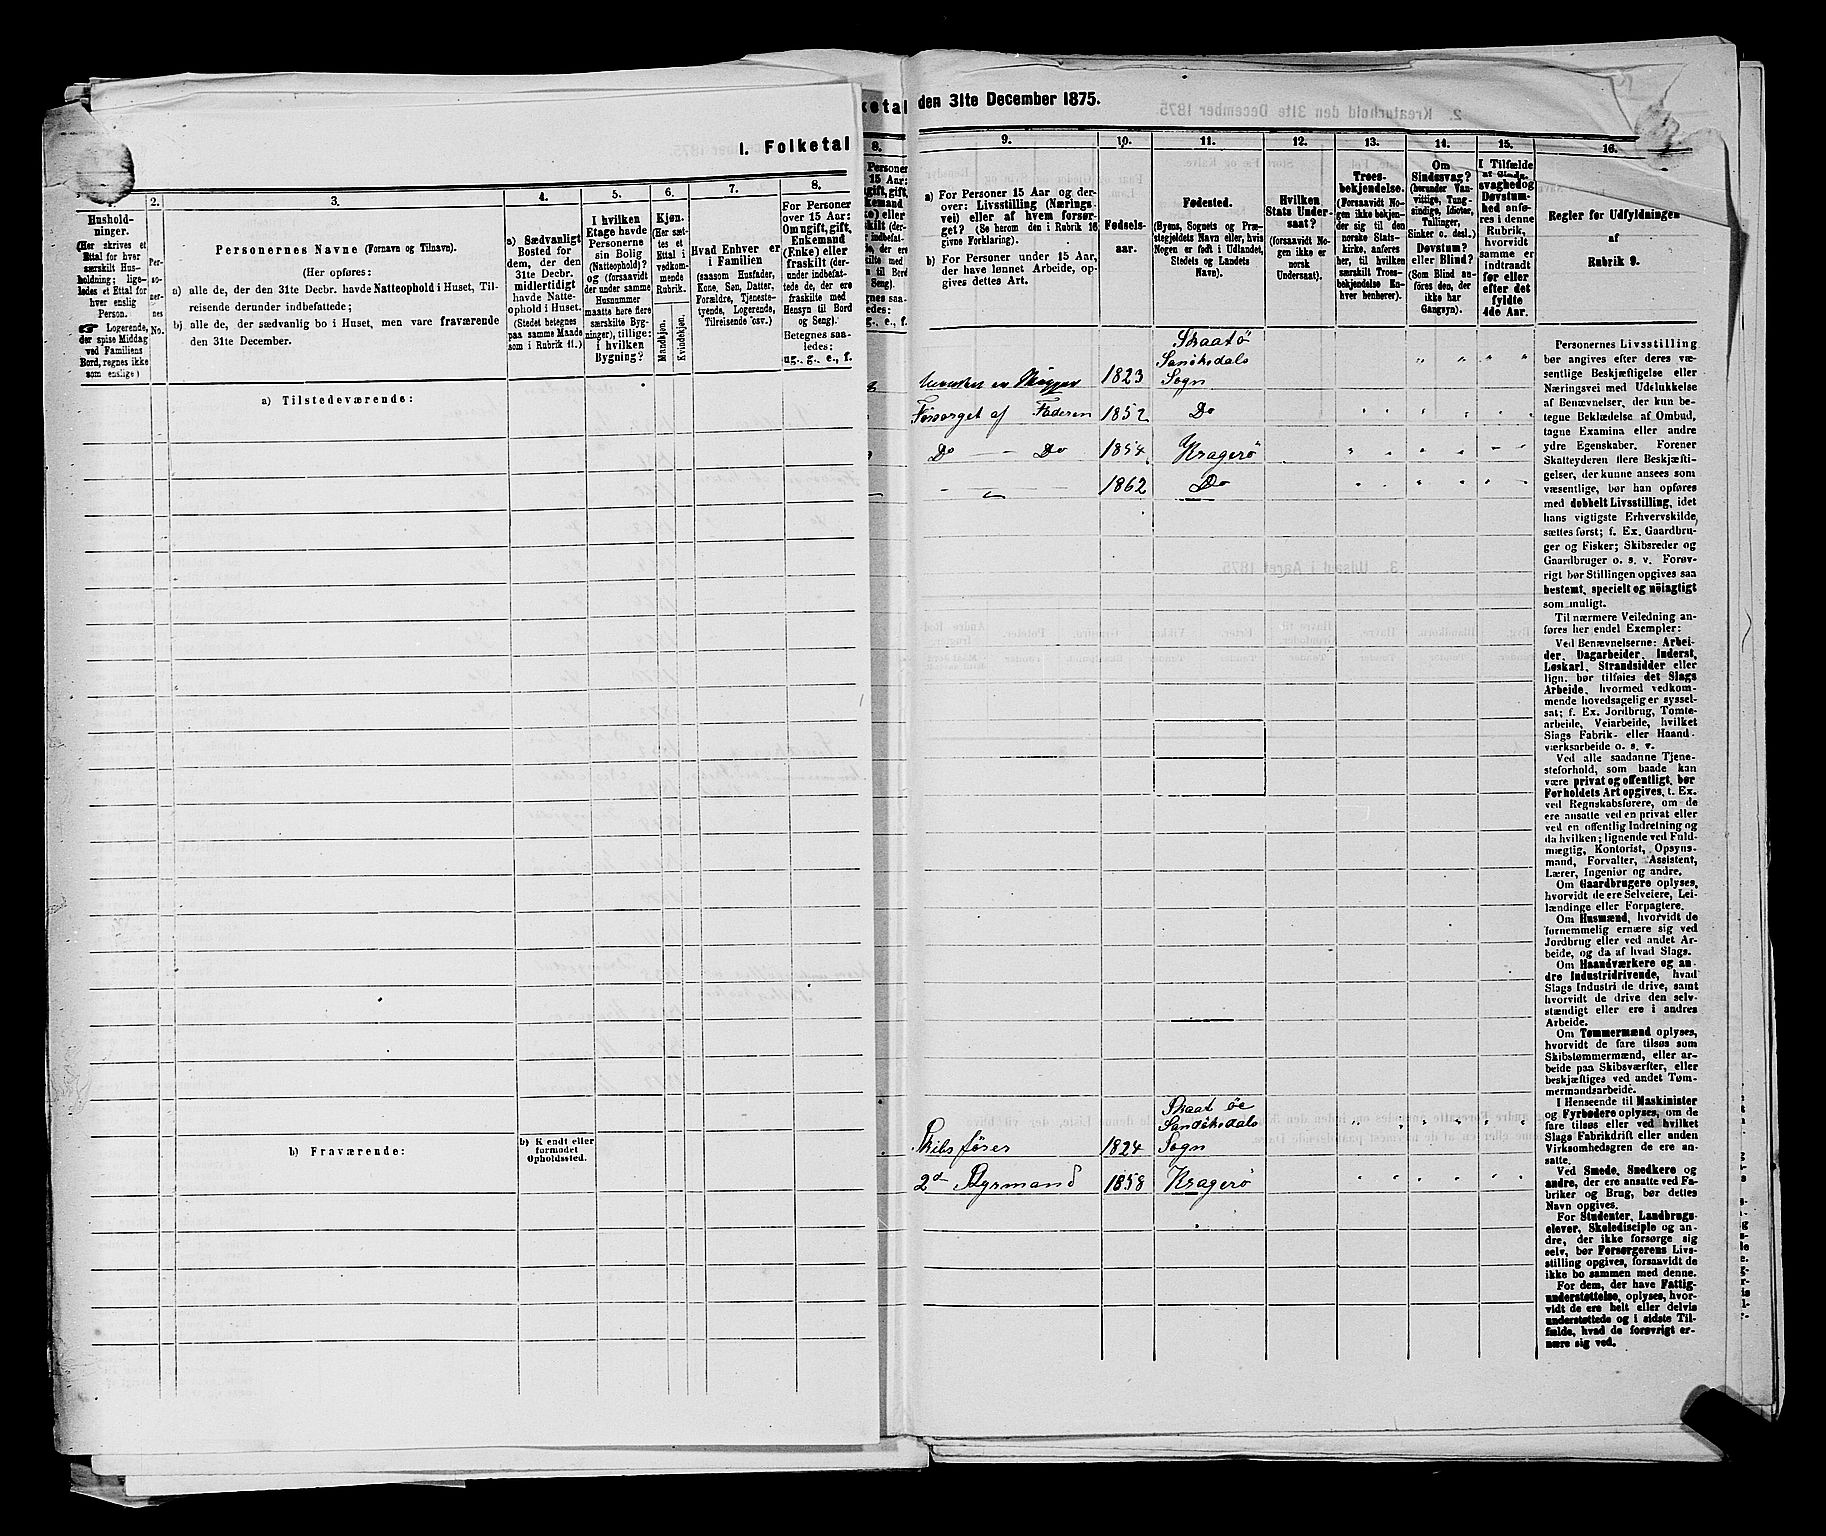 1. Folketal
1.
2.
3.
4.
5.
6.
7.
8.
Hushold-
ninger.
(Her skrives et
Ettal for hver
særskilt Hus-
holdning; lige-
ledes et Ettal for
hver enslig
Person.
Logerende,
der spise Middag
ved Familiens
Bord, regnes ikke
som enslige)
Per-
so-
ner-
nes
No.
Personernes Navne (Fornavn og Tilnavn).
(Her opføres:
a) alle de, der den 31te Decbr. havde Natteophold i Huset, Til-
reisende derunder indbefattede;
b) alle de, der sædvanlig bo i Huset, men vare fraværende
den 31te December.
a) Sædvanligt
Bosted for
dem, der den
31te Decbr.
midlertidigt
havde Natte-
ophold i Huset.
(Stedet betegnes
paa samme Maade
som i Rubrik 11.)
I hvilken
Etage havde
Personerne
sin Bolig
(Natteophold)?
og (forsaavidt
der under samme
Husnummer
maatte høre flere
særskilte Byg-
ninger), tillige:
i hvilken
Bygning?
Kjøn.
(Her sæt-
tes et
Ettal i
vedkom-
mende
Rubrik.
Mandkjøn.
Kvindekjøn.
Hvad Enhver er
i Familien
(saasom Husfader,
Kone, Søn, Datter,
Forældre, Tjeneste-
tyende, Logerende,
Tilreisende osv.)
For Personer
over 15 Aar:
Om ugift, gift,
Enkemand
(Enke) eller
fraskilt (der-
under indbefat-
tede de, der ere
fraskilte med
Hensyn til Bord
og Seng).
Betegnes saa-
ledes:
ug., g., e., f.
a) Tilstedeværende:
b) Fraværende:
b) Kjendt eller
formodet
Opholdssted.
ketal den 31te December 1875.
8.
9.
10.
11.
12.
13.
14.
15.
16.
a) For Personer 15 Aar og der-
over: Livsstilling (Nærings-
vei) eller af hvem forsør-
get? (Se herom den i Rubrik 16
givne Forklaring).
b) For Personer under 15 Aar,
der have lønnet Arbeide, op-
gives dettes Art.
Fødsels-
aar.
Fødested.
(Byens, Sognets og Præ-
stegjeldets Navn eller, hvis
Nogen er født i Udlandet,
Stedets og Landets
Navn).
Hvilken
Stats Under-
saat?
(forsaavidt No-
gen ikke er
norsk
Undersaat).
Troes-
bekjendelse.
(Forsaavidt No-
gen ikke bekjen-
der sig til den
norske Stats-
kirke, anføres
her, til hvilken
særskilt Troes-
bekjendelse En-
hver henhører).
Om
Sindssvag?
(herunder Van-
vittige, Tung-
sindige, Idioter,
Tullinger,
Sinker o. desl.)
Døvstum?
eller Blind?
(Som Blind an-
føres den, der
ikke har
Gangsyn).
I Tilfælde
af Sinds-
svaghed og
Døvstum-
hed anfø-
res i denne
Rubrik,
hvorvidt
samme er
indtraadt
før eller
efter det
fyldte
4de Aar.
Regler for Udfyldningen
af
Rubrik 9.
1823 Skaatø Sanökedals Sogn " " " "
Forsørget af Faderen 1852 Do " " " "
Do — - Do 1854 Kragerö " " " "
— " — 1862 Do " " " "
Skibsfører 1824 Skaatøe Sandøkedals Sogn " " " "
2d Styrmand 1858 Kragerö " " " "
Personernes Livsstilling
bør angives efter deres væ-
sentlige Beskjæftigelse eller
Næringsvei med Udelukkelse
af Benævnelser, der kun be-
tegne Beklædelse af Ombud,
tagne Examina eller andre
ydre Egenskaber. Forener
Skatteyderen flere Beskjæfti-
gelser, der kunne ansees som
væsentlige, bør han opføres
med dobbelt Livsstilling, idet
hans vigtigste Erhvervskilde
sættes først; f. Ex. Gaardbru-
ger og Fisker; Skibsreder og
Gaardbruger o. s. v. Forøv-
rigt bør Stillingen opgives saa
bestemt, specielt og nøiagtigt
som muligt.
Til nærmere Veiledning an-
føres her endel Exempler:
Ved Benævnelserne: Arbei-
der, Dagarbeider, Inderst,
Løskarl, Strandsidder eller
lign. bør tilføies det Slags
Arbeide, hvormed vedkom-
mende hovedsagelig er syssel-
sat; f. Ex. Jordbrug, Tomte-
arbeide, Veiarbeide, hvilket
Slags Fabrik- eller Haand-
værksarbeide o. s. v.
Ved alle saadanne Tjene-
steforhold, som baade kan
være privat og offentligt, bør
Forholdets Art opgives, t. Ex.
ved Regnskabsførere, om de
ere ansatte ved en privat eller
ved en offentlig Indretning og
da hvilken; lignende ved Fuld-
mægtig, Kontorist, Opsyns-
mand, Forvalter, Assistent,
Lærer, Ingeniør og andre.
Om Gaardbrugere oplyses,
hvorvidt de ere Selveiere, Lei-
lændinge eller Forpagtere.
Om Husmænd, hvorvidt de
fornemmelig ernære sig ved
Jordbrug eller ved andet Ar-
beide, og da af hvad Slags.
Om Haandværkere og an-
dre Industridrivende, hvad
Slags Industri de drive, samt
hvorvidt de drive den selv-
stændigt eller ere i andres
Arbeide.
Om Tømmermænd oplyses,
hvorvidt de fare tilsøs som
Skibstømmermænd, eller ar-
beide paa Skibsværfter, eller
beskjæftiges ved andet Tøm-
mermandsarbeide.
I Henseende til Maskinister
og Fyrbødere oplyses, om de
fare tilsøs eller ved hvilket
Slags Fabrikdrift eller anden
Virksomhedsgren de ere an-
satte.
Ved Smede, Snedkere og
andre, der ere ansatte ved Fa-
briker og Brug, bør dettes
Navn opgives.
For Studenter, Landbrugs-
elever, Skoledisciple og an-
dre, der ikke forsørge sig
selv, bør Forsørgerens Livs-
stilling opgives, forsaavidt de
ikke bo sammen med denne.
For dem, der have Fattig-
understøttelse, oplyses, hvor-
vidt de ere helt eller delvis
understøttede og i sidste Til-
fælde, hvad de forøvrigt er-
nære sig ved.